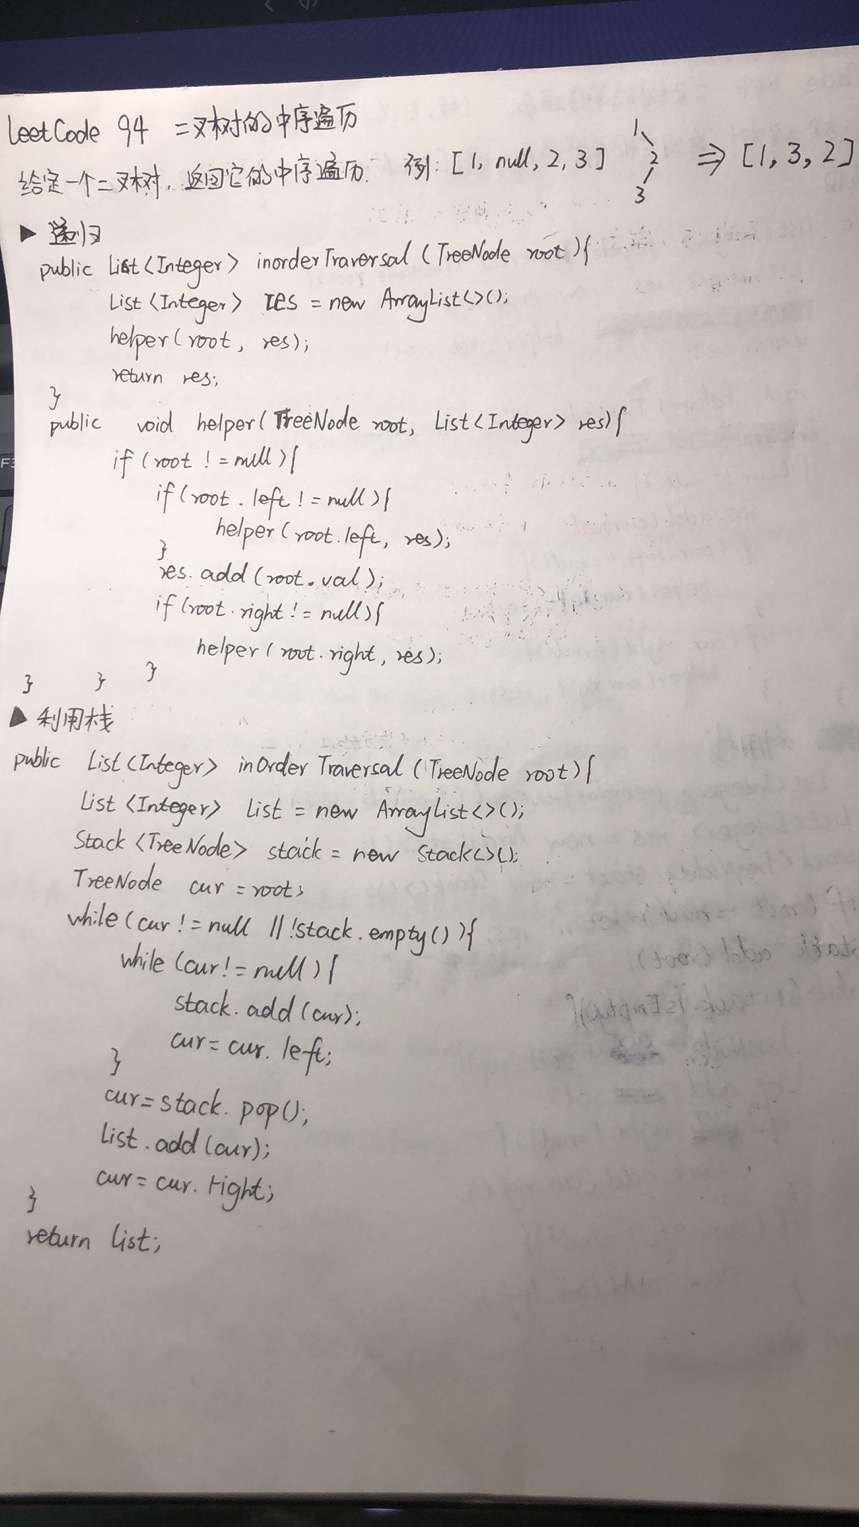 LeetCode 94 二叉树的中序遍历
给定一个二叉树，返回它的中序遍历. 例: [1, null, 2, 3] 1 2 3 ⇒ [1, 3, 2]
▶ 递归
public List<Integer> inorderTraversal (TreeNode root){
List<Integer> res = new ArrayList<>();
helper(root, res);
return res;
}
public void helper(TreeNode root, List<Integer> res){
if (root != null){
if(root.left != null){
helper(root.left, res);
}
res.add(root.val);
if(root.right != null){
helper(root.right, res);
} } }
▶ 利用栈
public List<Integer> inOrderTraversal (TreeNode root){
List<Integer> List = new ArrayList<>();
Stack<TreeNode> stack = new Stack<>();
TreeNode cur = root;
while(cur != null || !stack.empty()){
while (cur != null){
stack.add(cur);
cur = cur.left;
}
cur = stack.pop();
List.add(cur);
cur = cur.right;
}
return list;